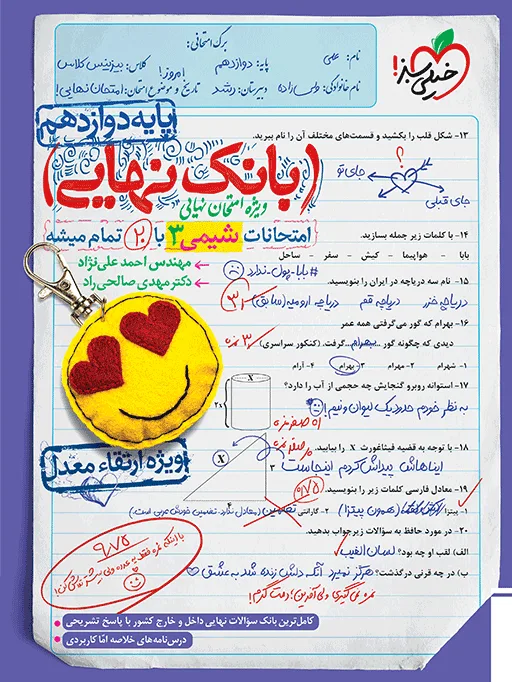 برگ امتحانی:
نام: علمی
پایه: دوازدهم
کلاس: بیزینس کلاس
نام خانوادگی: ولی‌زاده
دبیرستان: رشد
امروز!
تاریخ و موضوع امتحان: امتحان نهایی!
خیلی سبز!
پایه دوازدهم
۱۳- شکل قلب را بکشید و قسمت‌های مختلف آن را نام ببرید.
؟
جای تو
جای قبلی
(بانک نهایی)
ویژه امتحان نهایی
امتحانات شیمی ۳ با ۲۰ تمام میشه
مهندس احمد علی‌نژاد
دکتر مهدی صالحی‌راد
۱۴- با کلمات زیر جمله بسازید.
بابا - هواپیما - کیش - سفر - ساحل
#بابا-پول-ندارد
۱۵- نام سه دریاچه در ایران را بنویسید.
دریاچه خزر دریاچه قم دریاچه ارومیه (سابق)
۱۶- بهرام که گور می‌گرفتی همه عمر
دیدی که چگونه گور ...بهرام... گرفت. (کنکور سراسری)
۳ نمره
۱- شهرام ۲- مهرام ۳- بهرام ۴- آرام
۱۷- استوانه روبرو گنجایش چه حجمی از آب را دارد؟
X
2X
به نظر خودم حدود یک لیوان و نیم!
۱۸- با توجه به قضیه فیثاغورث X را بیابید.
X
۳
۴
ایناهاش پیداش کردم اینجاست
ویژه ارتقاء معدل
۱۹- معادل فارسی کلمات زیر را بنویسید.
۰/۷۵
۱- پیتزا (همون پیتزا) ۲- گارانتی تضمین (معادل نداره. تضمین خودش عربی است)
۲۰- در مورد حافظ به سؤالات زیر جواب بدهید.
الف) لقب او چه بود؟ لسان الغیب
ب) در چه قرنی درگذشت؟ هرگز نمیرد آنکه دلش زنده شد به عشق
نمره نمی‌گیری ولی آفرین! دمت گرم!
۹/۷۵
کامل‌ترین بانک سؤالات نهایی داخل و خارج کشور با پاسخ تشریحی
درس‌نامه‌های خلاصه اما کاربردی